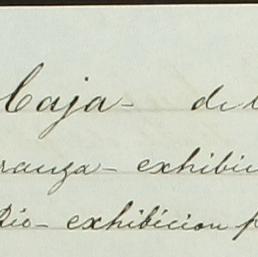 Caja - de
ranza - exhibic
Rio - exhibicion p